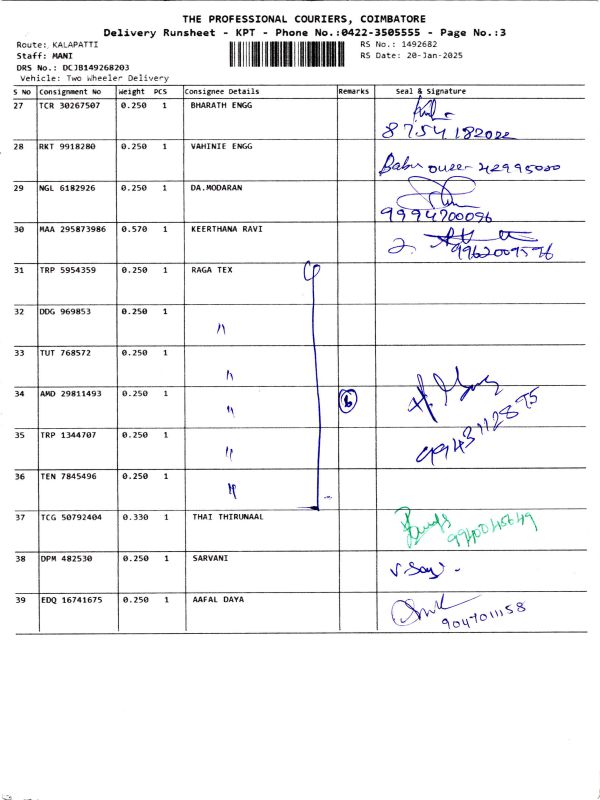 THE PROFESSIONAL COURIERS, COIMBATORE
Delivery Runsheet - KPT - Phone No.:0422-3505555 - Page No.:3
Route: KALAPATTI
RS No.: 1492682
Staff: MANI
RS Date: 20-Jan-2025
DRS No.: DCJB149268203
Vehicle: Two Wheeler Delivery
S No Consignment No Weight PCS Consignee Details Remarks Seal & Signature
27 TCR 30267507 0.250 1 BHARATH ENGG
8754182022
28 RKT 9918280 0.250 1 VAHINIE ENGG Babu
29 NGL 6182926 0.250 1 DA.MODARAN
9994700096
30 MAA 295873986 0.570 1 KEERTHANA RAVI
9962009576
31 TRP 5954359 0.250 1 RAGA TEX
32 DDG 969853 0.250 1 "
33 TUT 768572 0.250 1 "
34 AMD 29811493 0.250 1 " 6
9943112895
35 TRP 1344707 0.250 1 "
36 TEN 7845496 0.250 1 "
37 TCG 50792404 0.330 1 THAI THIRUNAAL
9940045649
38 DPM 482530 0.250 1 SARVANI
39 EDQ 16741675 0.250 1 AAFAL DAYA
9047011158